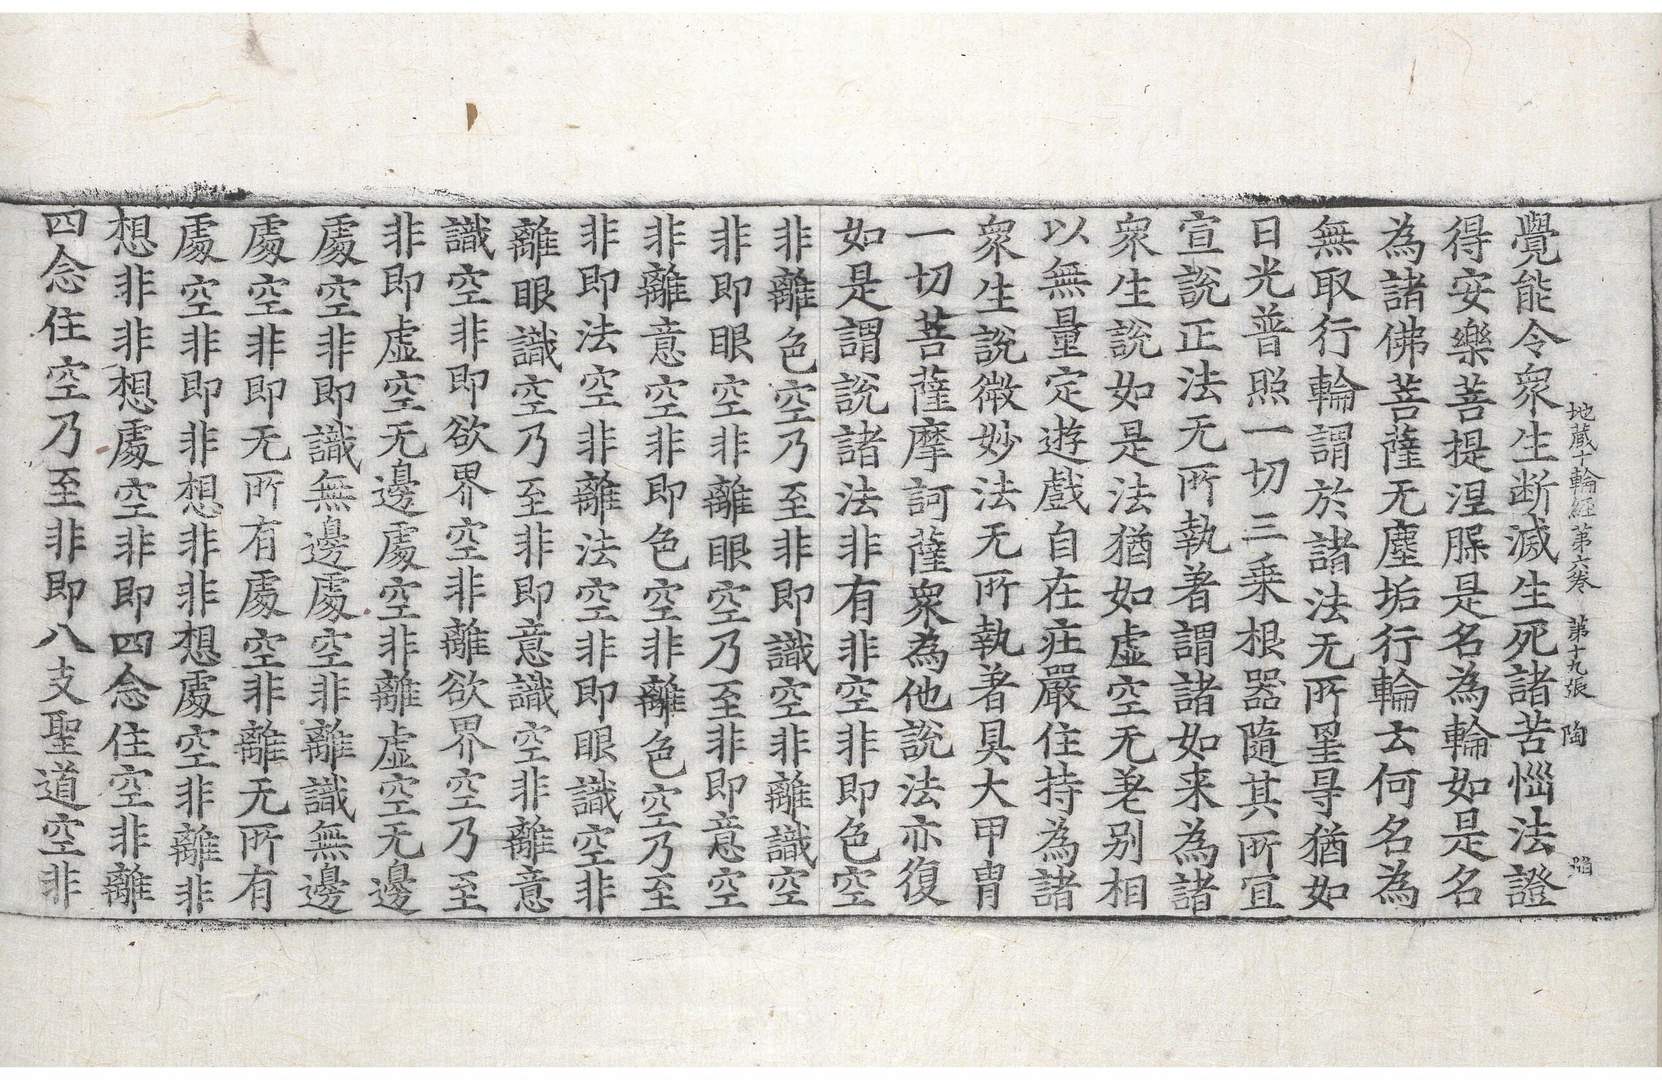 地蔵十輪経第六卷 第十九張 陶
覺能令衆生断滅生死諸苦惱法證
得安樂菩提涅槃是名為輪如是名
為諸佛菩薩无塵垢行輪云何名為
無取行輪謂於諸法无所罣导猶如
日光普照一切三乗根器隨其所宜
宣說正法无所執著謂諸如来為諸
衆生說如是法猶如虛空无差别相
以無量定遊戲自在庄嚴住持為諸
衆生說微妙法无所執著具大甲胄
一切菩薩摩訶薩衆為他說法亦復
如是謂說諸法非有非空非即色空
非離色空乃至非即識空非離識空
非即眼空非離眼空乃至非即意空
非離意空非即色空非離色空乃至
非即法空非離法空非即眼識空非
離眼識空乃至非即意識空非離意
識空非即欲界空非離欲界空乃至
非即虛空无邊處空非離虛空无邊
處空非即識無邊處空非離識無邊
處空非即无所有處空非離无所有
處空非即非想非非想處空非離非
想非非想處空非即四念住空非離
四念住空乃至非即八支聖道空非